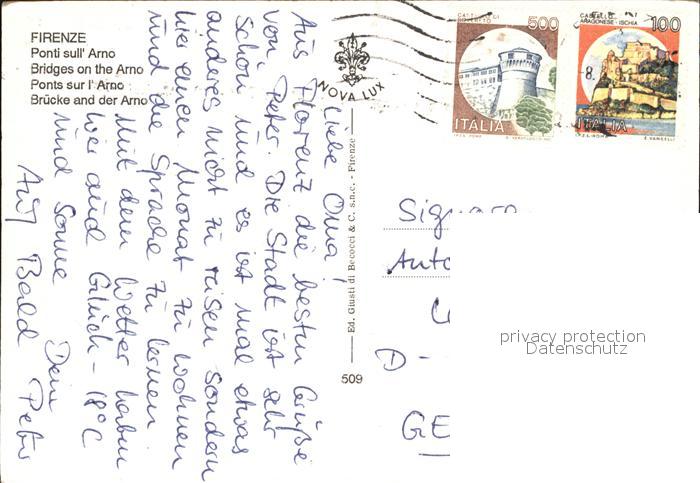 FIRENZE
Ponti sull' Arno
Bridges on the Arno
Ponts sur l' Arno
Brücke and der Arno
NOVA LUX
CASTELLO DI
ROVERETO
500
ITALIA
CASTELLO
ARAGONESE - ISCHIA
100
ITALIA
8.
Liebe Oma!
Aus Florenz die besten Grüße
von Peter. Die Stadt ist sehr
schön und es ist mal etwas
anderes nicht zu reisen sondern
hier einen Monat zu wohnen
und die Sprache zu lernen.
Mit dem Wetter haben
wir auch Glück - 18°C
und Sonne
Dein
Auf Bald Peter
Ed. Giusti di Becocci & C. s.n.c. - Firenze
509
Signora
D -
GE
privacy protection
Datenschutz